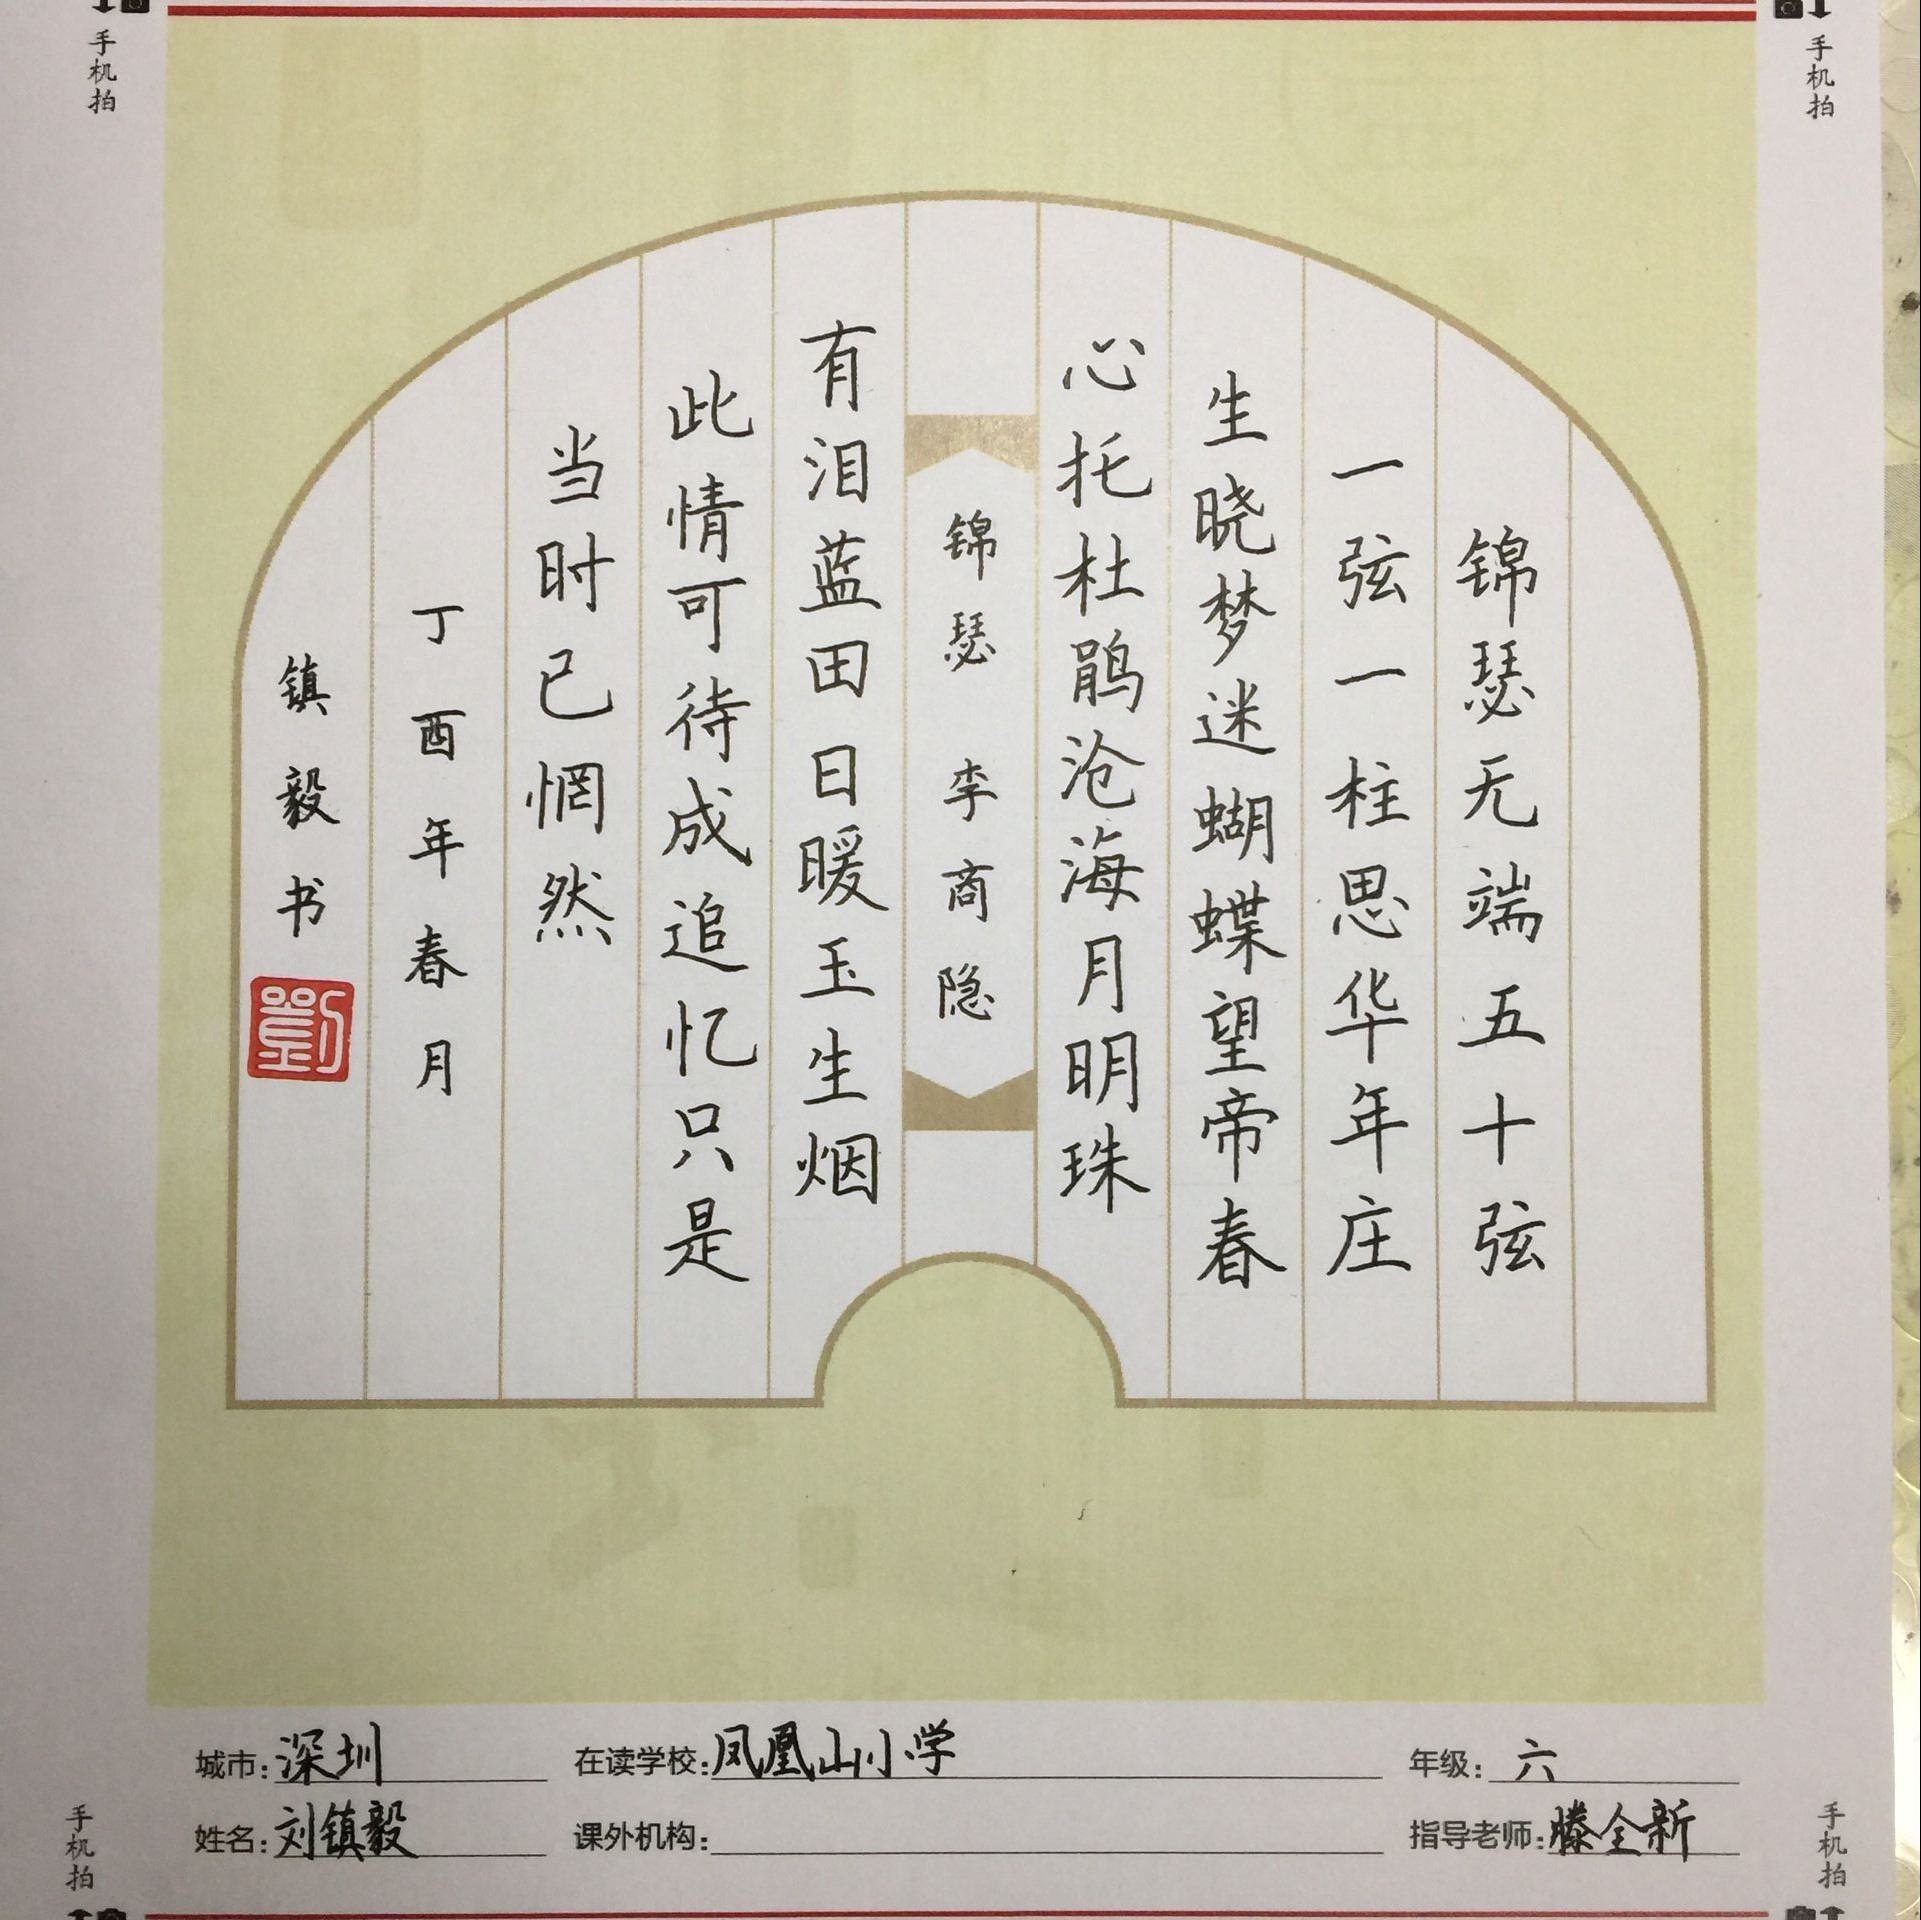 手机拍
手机拍
锦瑟无端五十弦
一弦一柱思华年庄
生晓梦迷蝴蝶望帝春
心托杜鹃沧海月明珠
锦瑟 李商隐
有泪蓝田日暖玉生烟
此情可待成追忆只是
当时已惘然
丁酉年春月
镇毅书
劉
城市:深圳 在读学校:凤凰山小学 年级:六
姓名:刘镇毅 课外机构: 指导老师:滕全新
手机拍
手机拍